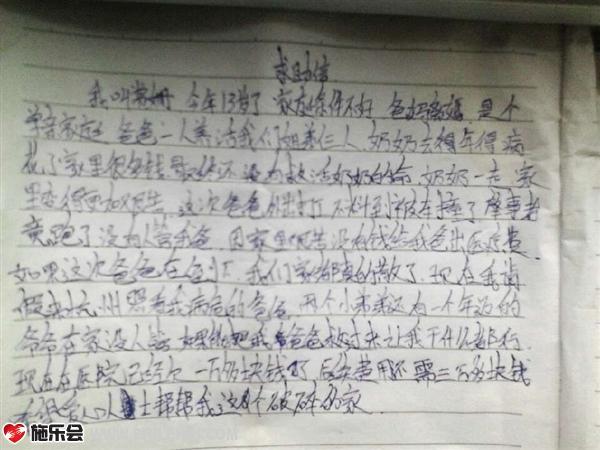 求助信
我叫 今年13岁了 家庭条件不好 爸妈离婚 是个
单亲家庭 爸爸一人养活我们姐弟仨人 奶奶去年得病
花了家里很多钱最终还没有救活奶奶的命 奶奶一去 家
里变得更加 这次爸爸外出打工不料到被车撞了肇事者
竟跑了没有人管我爸 因家里 没有钱给我爸出医疗费
如果这次爸爸在 我们家都真的散了 现在我请
假来杭州照看我病危的爸爸 两个小弟弟还有一个年迈的
爷爷在家没人管 如果能把我爸爸救过来让我干什么都行
现在在医院已经欠一万多块钱了 后续费用还需三万多块钱
人士帮帮我这个破碎的家
施乐会